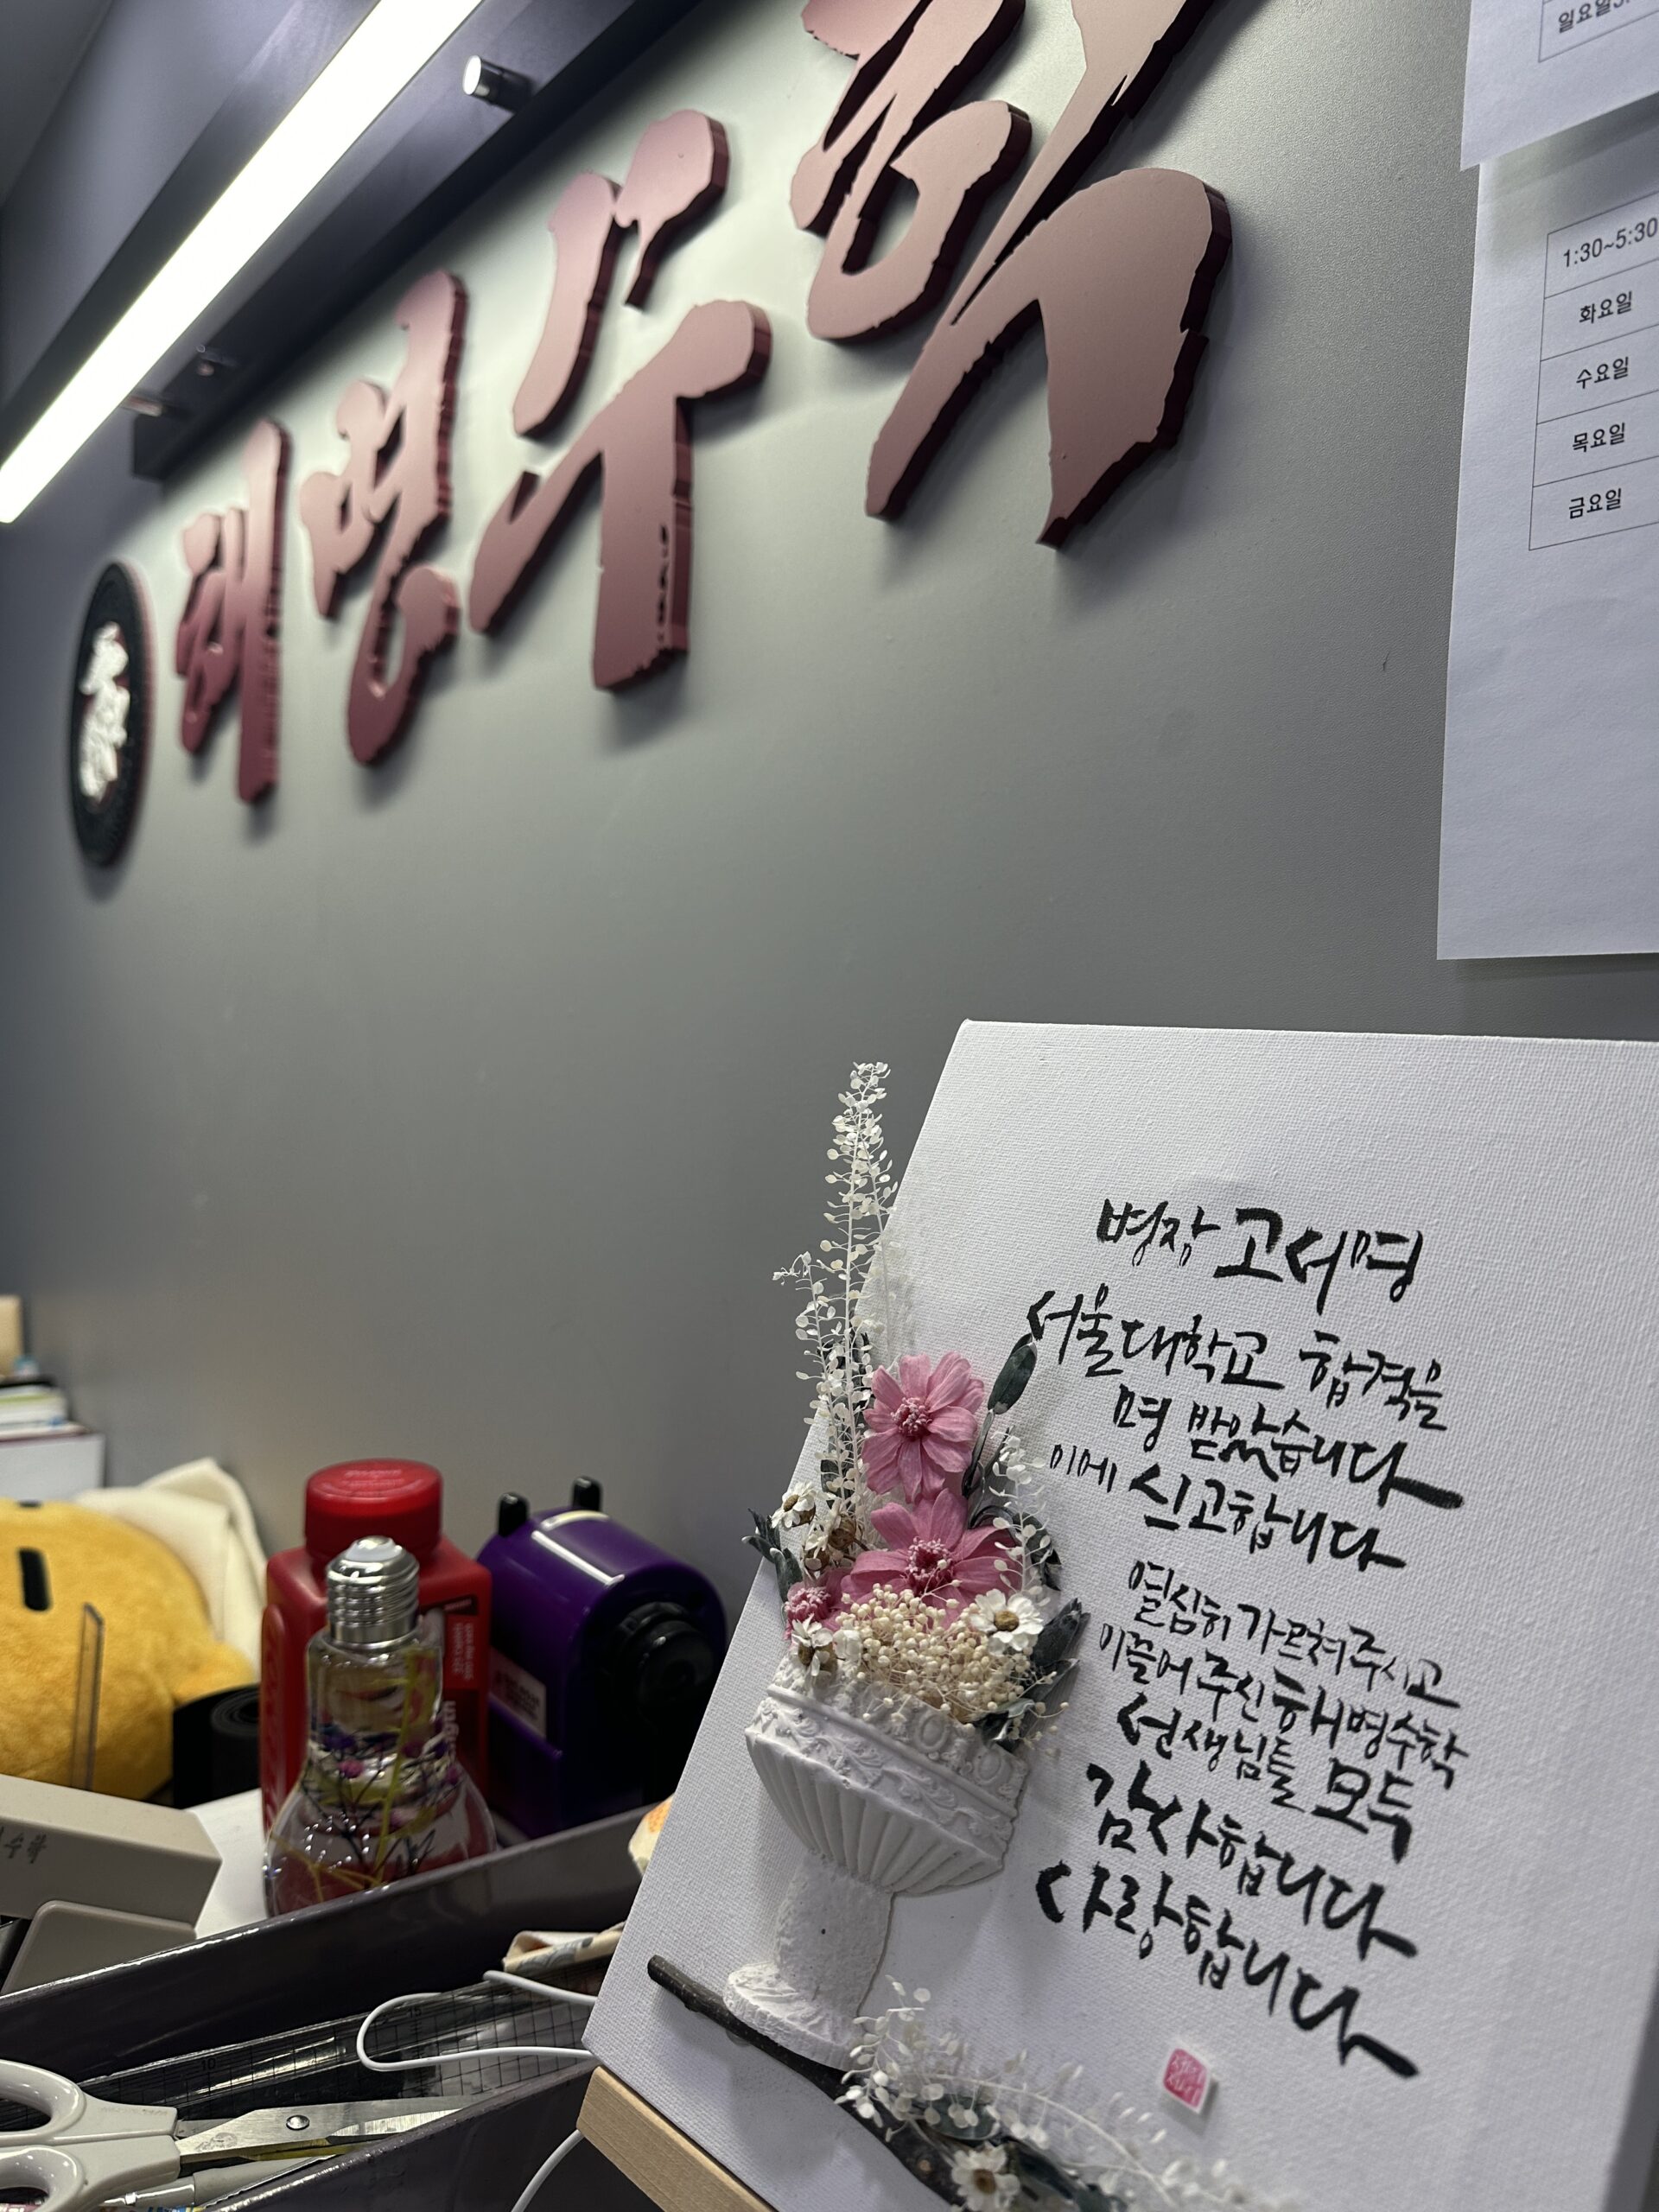 해병수학
일요일
1:30~5:30
화요일
수요일
목요일
금요일
병장 고서명
서울대학교 합격을
명 받았습니다
이에 신고합니다
열심히 가르쳐주시고
이끌어 주신 해병수학
선생님들 모두
감사합니다
사랑합니다